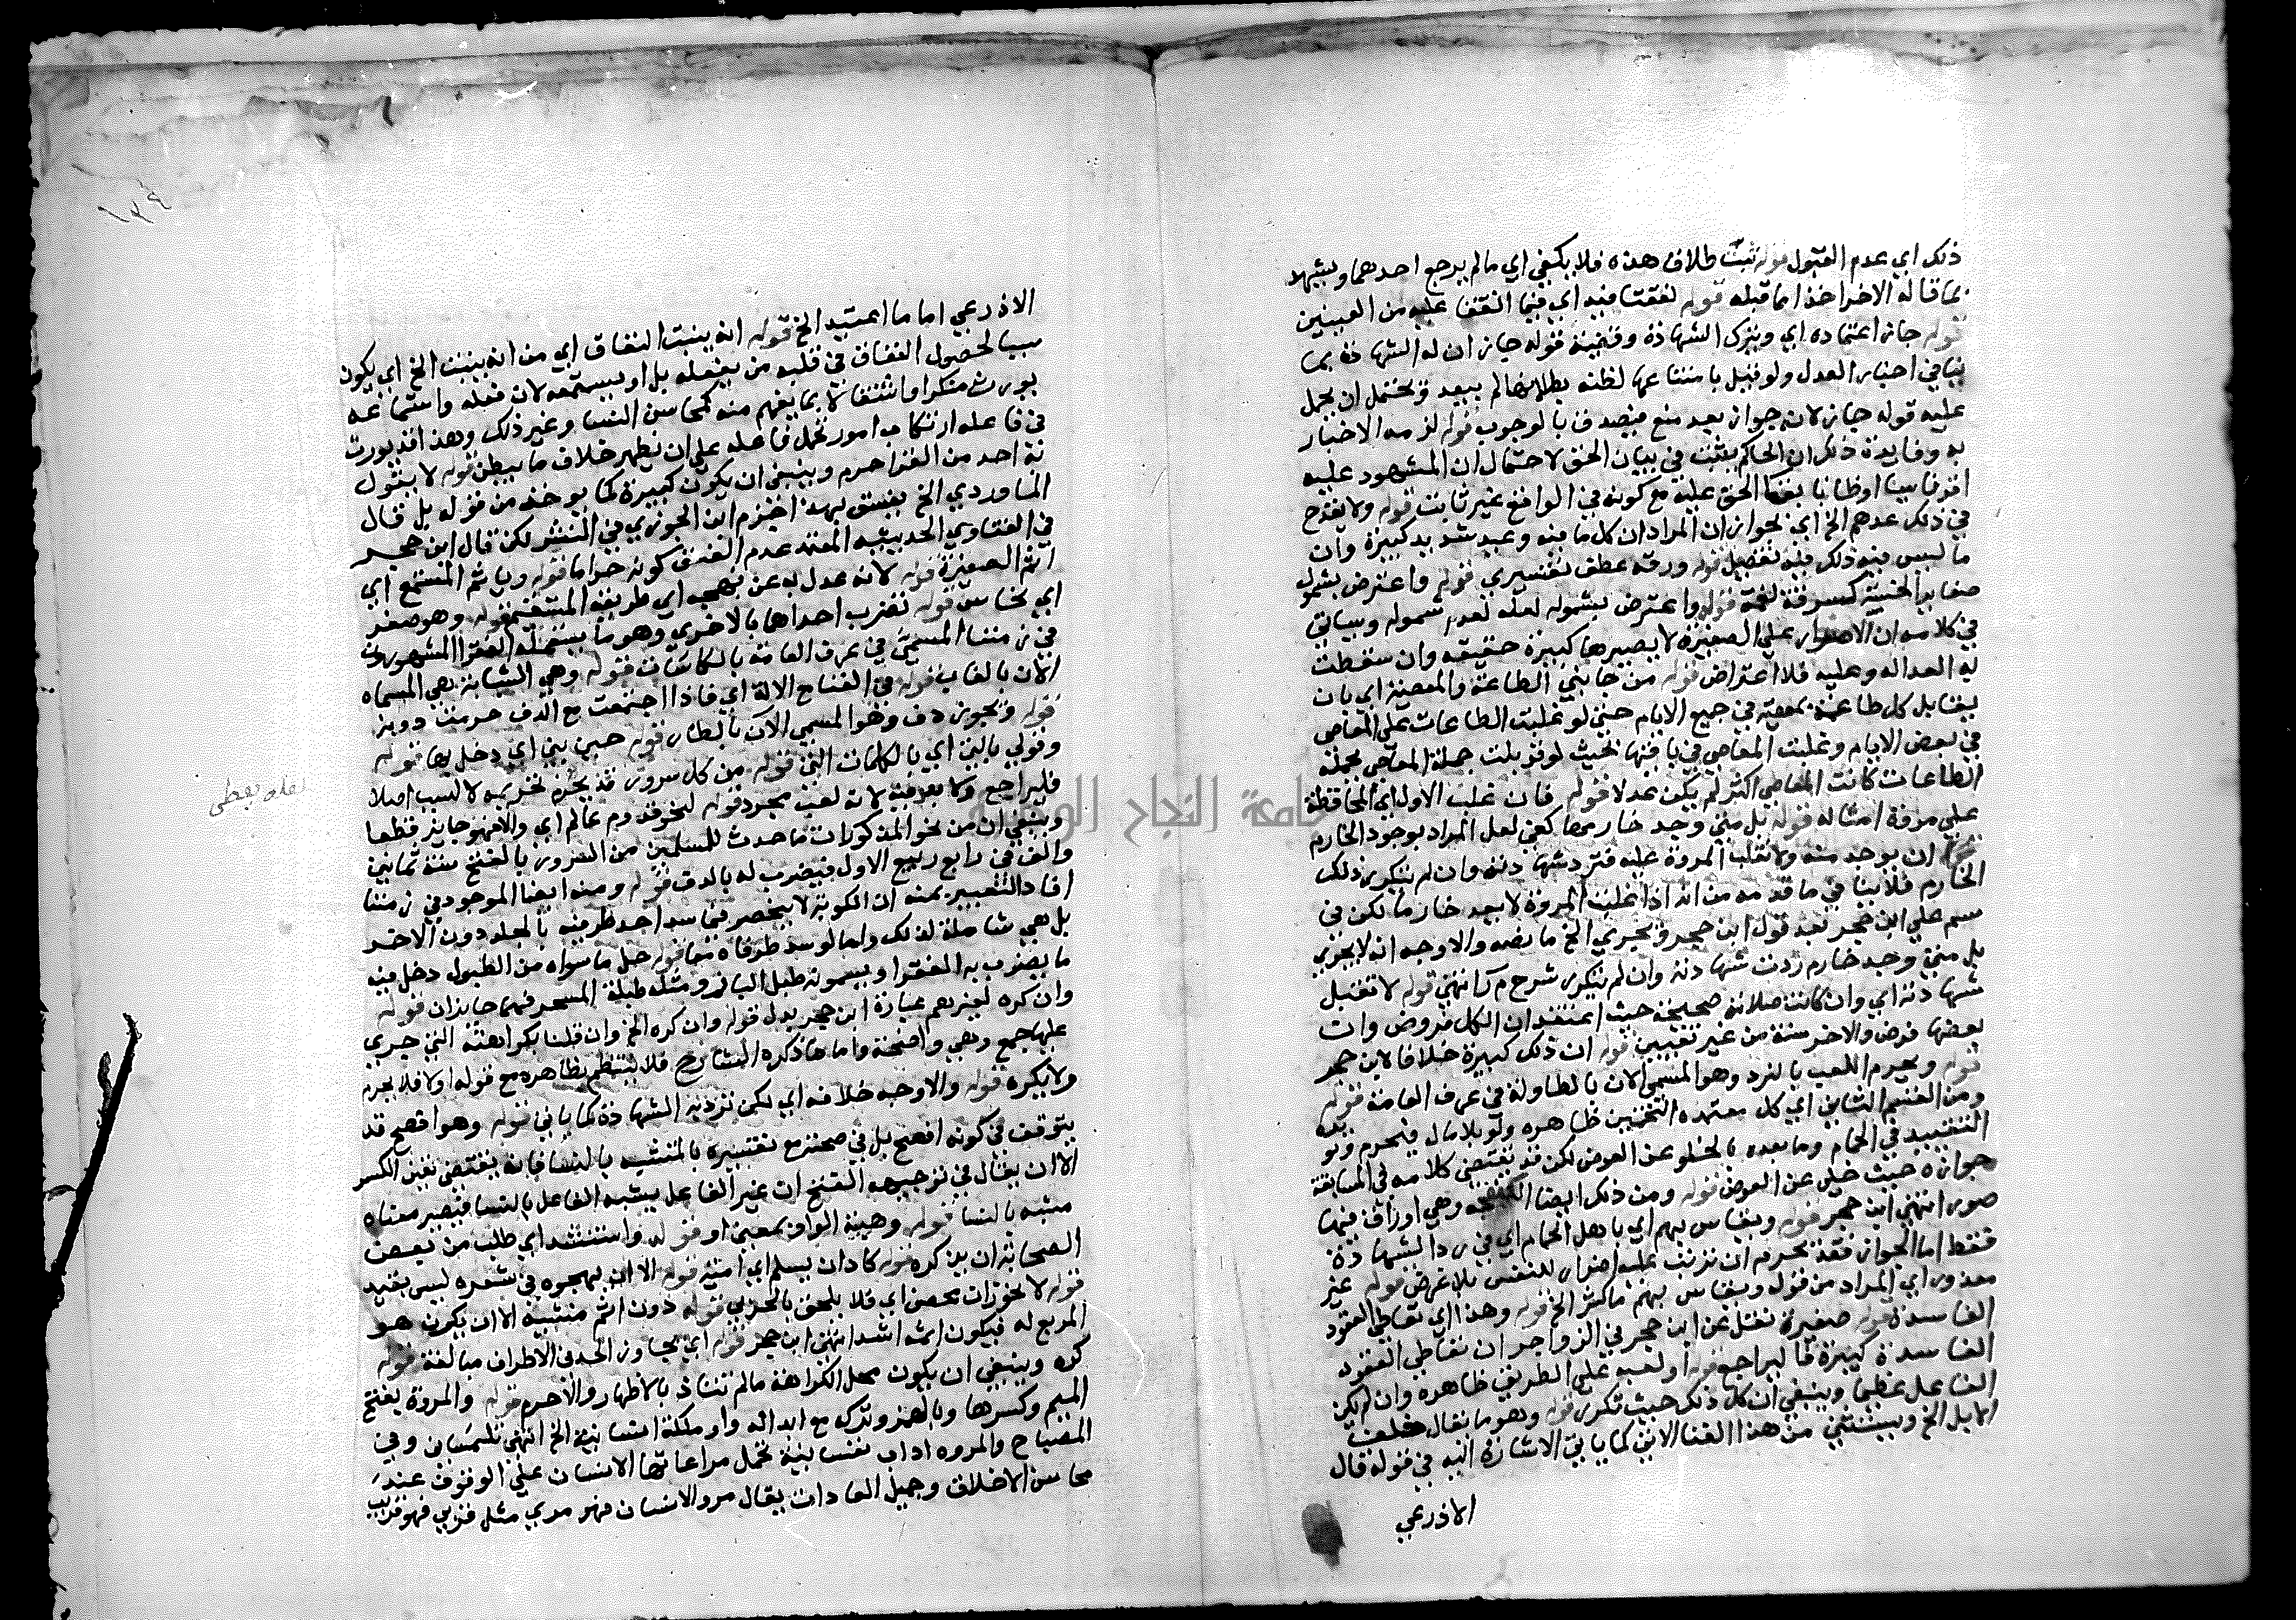 ذلك اي عدم القبول قوله ثبت طلاق هذه فلا يكفي اي ما لم يرجع احدهما ويشهد
بما قاله الاخر اخذا مما قبله قوله لفقتا فيه اي فيما اتفقا عليه من العينين
قوله جاز اعتماده اي ويترك الشهادة وقضية قوله جاز ان له الشهادة بما
ينافي اخبار العدل ولو قيل بامتناعها لظنه بطلانها لم يبعد ويحتمل ان يحمل
عليه قوله جاز لانه جواز بعد منع فيصدق بالوجوب قوله لزمه الاخبار
به وفايدة ذلك ان الحاكم يثبت في بيان الحق لاحتمال ان المشهود عليه
اقر ناسيا او ظانا بقا الحق عليه مع كونه في الواقع غير ثابت قوله ولا يقدح
في ذلك عدهم الخ اي لجواز ان المراد ان كل ما فيه وعيد شديد كبيرة وان
ما ليس فيه ذلك فيه تفصيل قوله ورقة عطف تفسيري قوله واعترض بشمول
صغاير الخسة كسرقة لقمة قوله واعترض بشموله لعله لعدم شموله وسياتي
في كلامه ان الاصرار على الصغيرة لا يصيرها كبيرة حقيقة وان سقطت
به العدالة وعليه فلا اعتراض قوله من جانبي الطاعة والمعصية اي بان
يقابل كل طاعة بمعصية في جميع الايام حتى لو غلبت الطاعات على المعاصي
في بعض الايام وغلبت المعاصي في باقيها بحيث لو قوبلت جملة المعاصي بجملة
الطاعات كانت المعاصي اكثر لم يكن عدلا قوله فان غلب الاول اي المحافظة
على مروة امثاله قوله بل متى وجد خارمها كفى لعل المراد بوجود الخارم
ان يوجد منه ولا تغلب المروة عليه فترد شهادته وان لم يتكرر ذلك
الخارم فلا ينافي ما قدمه من انه اذا غلبت المروة لا يعد خارما لكن في
سم على ابن حجر بعد قول ابن حجر ويجري الخ ما نصه والاوجه انه لا يجزي
بل متى وجد خارم ردت شهادته وان لم يتكرر شرح م ر انتهى قوله لا تقبل
شهادته اي وان كانت صلاته صحيحة حيث اعتقد ان الكل فروض وان
بعضها فرض والاخر سنة من غير تعيين قوله ان ذلك كبيرة خلافا لابن حجر
قوله ويحرم اللعب بالنرد وهو المسمى الان بالطاولة في عرف العامة قوله
ومن القسم الثاني اي كل معتمده التخمين ظاهره ولو بلا مال فيحرم
التقييد في الحمام وما بعده بالخلو عن العوض لكن قد يقتضي كلامه في المسابقة
جوازه حيث خلى عن العوض قوله ومن ذلك ايضا الكنجفه وهي اوراق فيها
صور انتهى ابن حجر قوله ويقاس بهم اي باهل الحمام اي في رد الشهادة
فقط اما الجواز فقد يحرم ان ترتب عليه اضرار للنفس بلا غرض قوله غير
معذور اي المراد من قوله ويقاس بهم ما كثر الخ قوله وهذا اي تعاطي العقود
الفاسدة قوله صغيرة نقل عن ابن حجر في الزواجر ان تعاطي العقود
الفاسدة كبيرة فاليراجع قوله او لعبه على الطريق ظاهره وان لم يكن
الفاعل عظيما وينبغي ان كل ذلك حيث تكرر قوله وهو ما يقال خلف
الابل الخ ويستثنى من هذا الغنا الاتي كما ياتي الاشارة اليه في قوله قال
الاذرعي
١٣٤
الاذرعي اما ما اعتيد الخ قوله انه ينبت النفاق اي من انه ينبت الخ اي يكون
سببا لحصول النفاق في قلب من يفعله بل او يستمعه لان فعله واستماعه
يورث منكرا واشتغالا بما يفهم منه كمحاسن النسا وغير ذلك وهذا قد يورث
في فاعله ارتكاب امور تحمل فاعله على ان يظهر خلاف ما يبطن قوله لا بقول
ته احد من القرا حرم وينبغي ان يكون كبيرة كما يوخذ من قوله بل قال
الماوردي الخ يفسق بهذا جزم ابن الجوزي في النشر لكن قال ابن حجر
في الفتاوي الحديثية المعتمد عدم الفسق كونه حراما قوله وياثم المستمع اي
اثم الصغيرة قوله لانه عدل به عن نهجه اي طريقه المستقيم قوله وهو صفر
اي نحاس قوله تضرب احداها بالاخرى وهو ما يستعمله الفقرا المشهورون
في زمننا المسمى في عرف العامة بالكاسات قوله وهي الشبابة هي المسماه
الان بالغاب قوله في الفتاح الالة اي فاذا اجتمعت مع الدف حرمت دونه
قوله ويجوز دف وهو المسمى الان بالطار قوله حين بنى اي دخل بها قوله
وقولي بالتي اي بالكلمات التي قوله من كل سرور قد يخرج تحريمه لا لسبب اصلا
فليراجع ولا بعد فيه لانه لعب مجرد قوله لنحو قدوم عالم اي والا فهو جايز قطعا
وينبغي ان من نحو المذكورات ما حدث للمسلمين من السرور بالفتح سنة ثمانين
والف في رابع ربيع الاول فيضرب له بالدف قوله ومنه ايضا الموجود في زمننا
افاد التعبير بمنه ان الكوبة لا ينحصر فيما سد احد طرفيه بالجلد دون الاخر
بل هي شاملة لذلك ولما لو سد طرفاه معا قوله حل ما سواه من الطبول دخل فيه
ما يضرب به الفقرا ويسمونه طبل الباز ومثله طبلة المسحر فهما جايزان قوله
وان كره لغيرهم عبارة ابن حجر بدل قوله وان كره الخ وان قلنا بكراهته التي جرى
عليها جمع وهي واضحة واما ما ذكره الشارح فلا ينتظم بظاهره مع قوله اولا فلا يحرم
ولا يكره قوله والاوجه خلافه اي لكن ترد به الشهادة كما ياتي قوله وهو افصح قد
يتوقف في كونه افصح بل في صحته مع تفسيره بالمتشبه بالنسا فانه يقتضي تعين الكسر
الا ان يقال في توجيهه الفتح ان غير الفاعل يشبه الفاعل بالنسا فيصير معناه
مشبه بالنسا قوله وهيئة الواو بمعنى او قوله واستنشد اي طلب من بعض
الصحابة ان يذكره قوله كاد ان يسلم اي امية قوله الا ان يهجوه في شعره ليس بقيد
قوله لا نحو زان محصن اي فلا يلحق بالحربي قوله دون اثم منشيه الا ان يكون هو
المربع له فيكون اثمه اشد انتهى ابن حجر قوله اي يجاوز الحد في الاطراف مبالغة قوله
كره وينبغي ان يكون محل الكراهة ما لم تتاذ بالاظهار والا حرم قوله والمروة بفتح
الميم وكسرها وبالهمز وتركه مع ابداله واو ملكة انسانية الخ انتهى تلمسان وفي
المصباح والمروه اداب نفسانية تحمل مراعاتها الانسان على الوقوف عند
محاسن الاخلاق وجميل العادات يقال مرو الانسان فهو مري مثل قرب فهو قريب
لعله يعطى
جامعة النجاح الوطنية